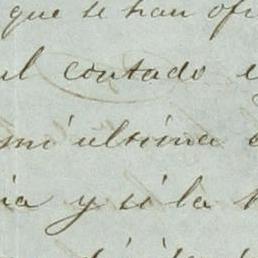 que se han ofr
al contado e
mi ultima e
ia y si la